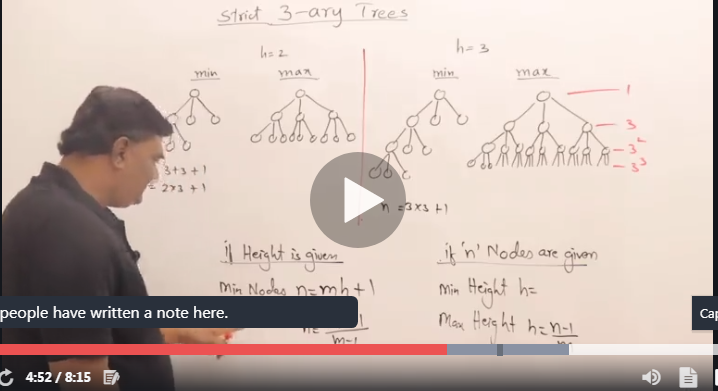 Strict 3-ary Trees
h=2
min
max
h=3
min
max
1
3
3²
3³
3+3+1
= 2x3 +1
n =3x3 +1
if Height is given
Min Nodes n=mh+1
if 'n' Nodes are given
Min Height h=
Max Height h=n-1
people have written a note here.
Cap
4:52 / 8:15